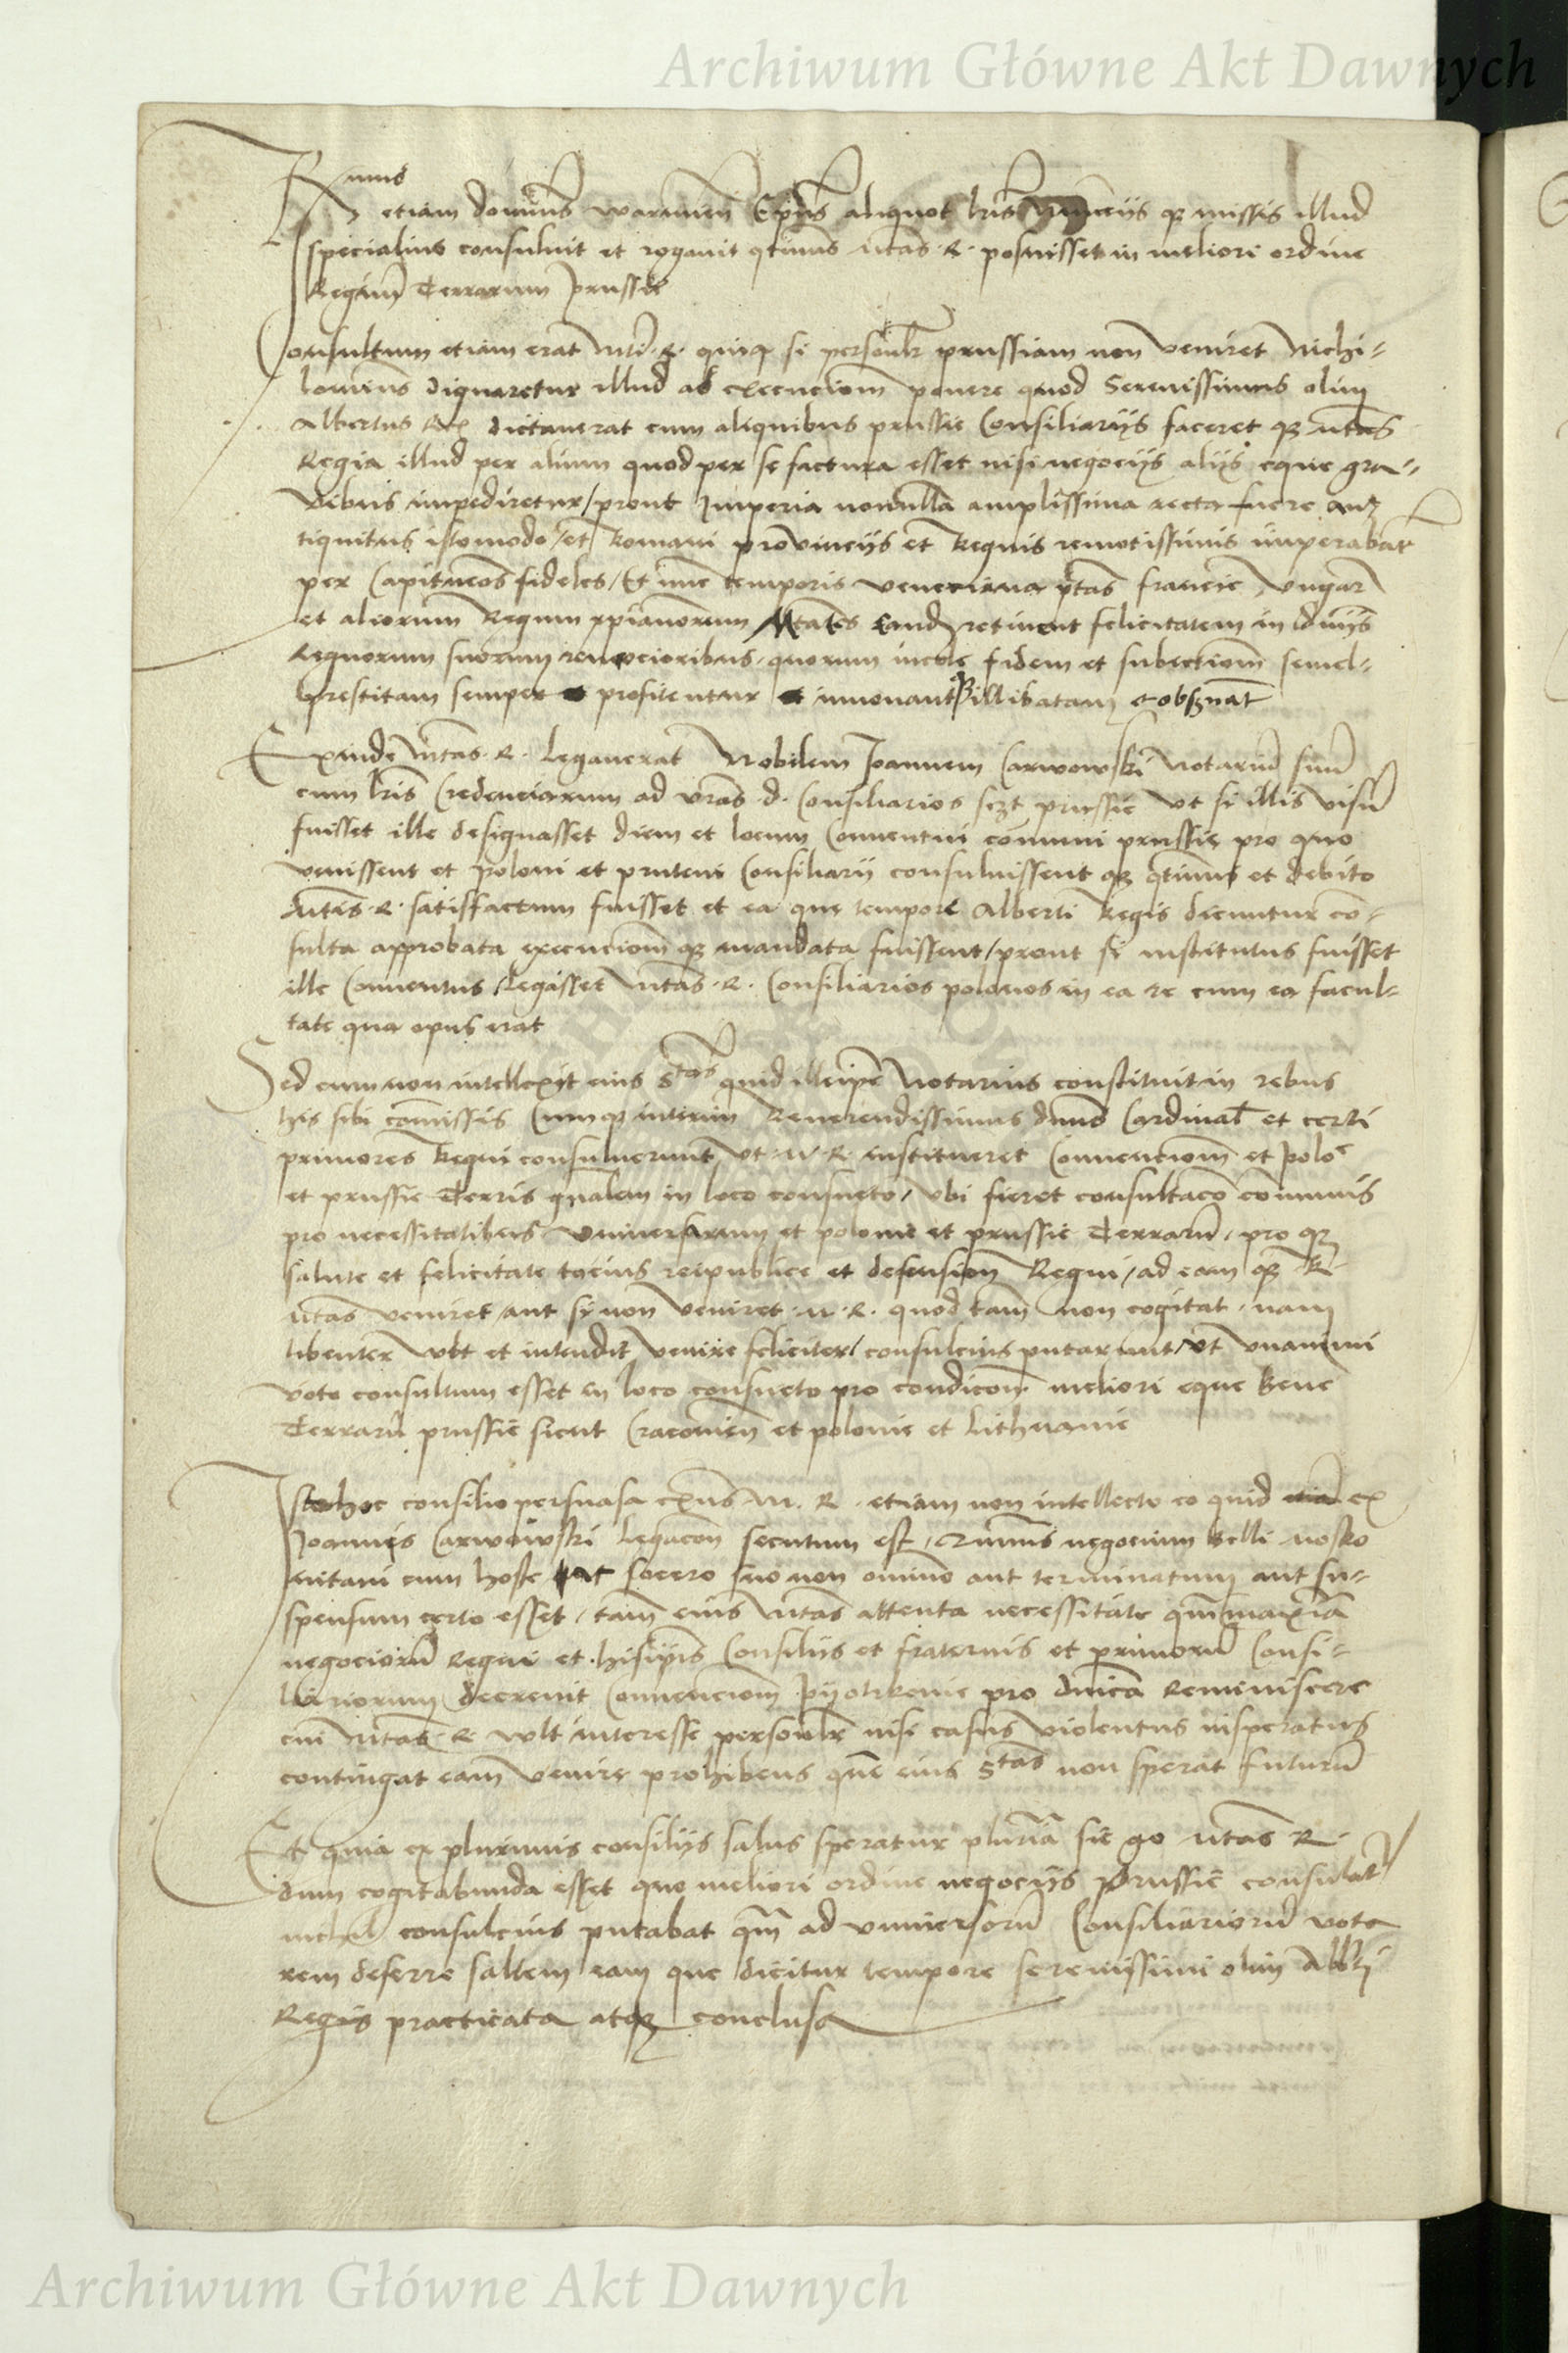 Archiwum Główne Akt Dawnych
R mus
etiam domins warmien Epus aliquot lris nunciis qz missis illud
specialius consuluit et rogauit qtinus mtas R posuisset in meliori ordine
Regimen Terrarum prussie
Consultum etiam erat mti R quiqz si personalr prussiam non veniret Nichi-
lominus dignaretur illud ad execucionem ponere quod Serenissimus olim
Albertus Rex dictauerat cum aliquibus prussie Consiliariis faceret qz mtas
Regia illud per alium quod per se factura esset nisi negociis aliis eque gra-
uibus impediretur / prout Imperia nonnulla amplissima recta fuere an-
tiquitus istomodo / et Romani prouinciis et Regnis remotissimis imperabat
per Capitneos fideles / Et nunc temporis veneciana ptas francie Vngar
et aliorum Regum xpianorum Mtates eandz retinent felicitatem in
Regnorum suorum quorum incole fidem et subiectionem semel-
prestitam semper profitentur innouant illibatam et obseruat
Exinde mtas R legauerat Nobilem Joannem Carwowski Notariu suu
cum lris Credenciarum ad vras d Consiliarios prussie vt si illis visu
fuisset ille designasset diem et locum Conuentui comuni prussie pro quo
venissent et poloni et pruteni Consiliarii consuluissent qz qtinus et debito
mtis R satisfactum fuisset et ea que tempore Alberti Regis dicuntur con-
sulta approbata execucioni qz mandata fuissent / prout si institutus fuisset
ille Conuentus legasset mtas R Consiliarios polonos in ea re cum ea facul-
tate qua opus erat
Sed cum non intellexit eius Stas quid ille ipse Notarius constituit in rebus
his sibi comissis Cumqz interim Reuerendissimus dnus Cardinal et certi
primores Regni consuluerunt vt M R institueret Conuencionem et polo
et prussie Terris gnalem in loco consueto / vbi fieret consultaco communis
pro necessitatibus vniuersarum et polonie et prussie Terraru / pro qz
salute et felicitate tocius reipublice et defension Regni / ad eam qz R
mtas veniret aut sy non veniret M R quod tam non cogitat nam
libenter vlt et intendit venire feliciter / consulcius putarunt / vt vnanimi
voto consultum esset in loco consueto pro condicon meliori eque bene
Terraru prussie sicut Cracouien et polonie et Lithuanie
Isto hoc consilio persuasa M R etiam non intellecto eo quid ex
Joannis Carwowski legacon secutum est / negocium belli mosko
uitani cum hoste socero suo non omnino aut terminatum aut su-
spensum certo esset / tam eius mtas attenta necessitate qm maxia
negocioru Regni et his ipis Consiliis et fraternis et primoru Consi-
liariorum decreuit Conuencionem Pyotrkouie pro dnica Reminiscere
cui mtas R vult interesse personalr nisi casus violentus insperatus
contingat eam venire prohibens que eius Stas non sperat futuru
Et quia ex plurimis consiliis salus speratur pluria sic go mtas R
dum cogitabunda esset quo meliori ordine negociis prussie consulat
nichil consulcius putabat qm ad vniuersoru Consiliarioru vota
rem deferre saltem eam que dicitur tempore serenissimi olim Albti
Regis practicata atqz conclusa
Archiwum Główne Akt Dawnych